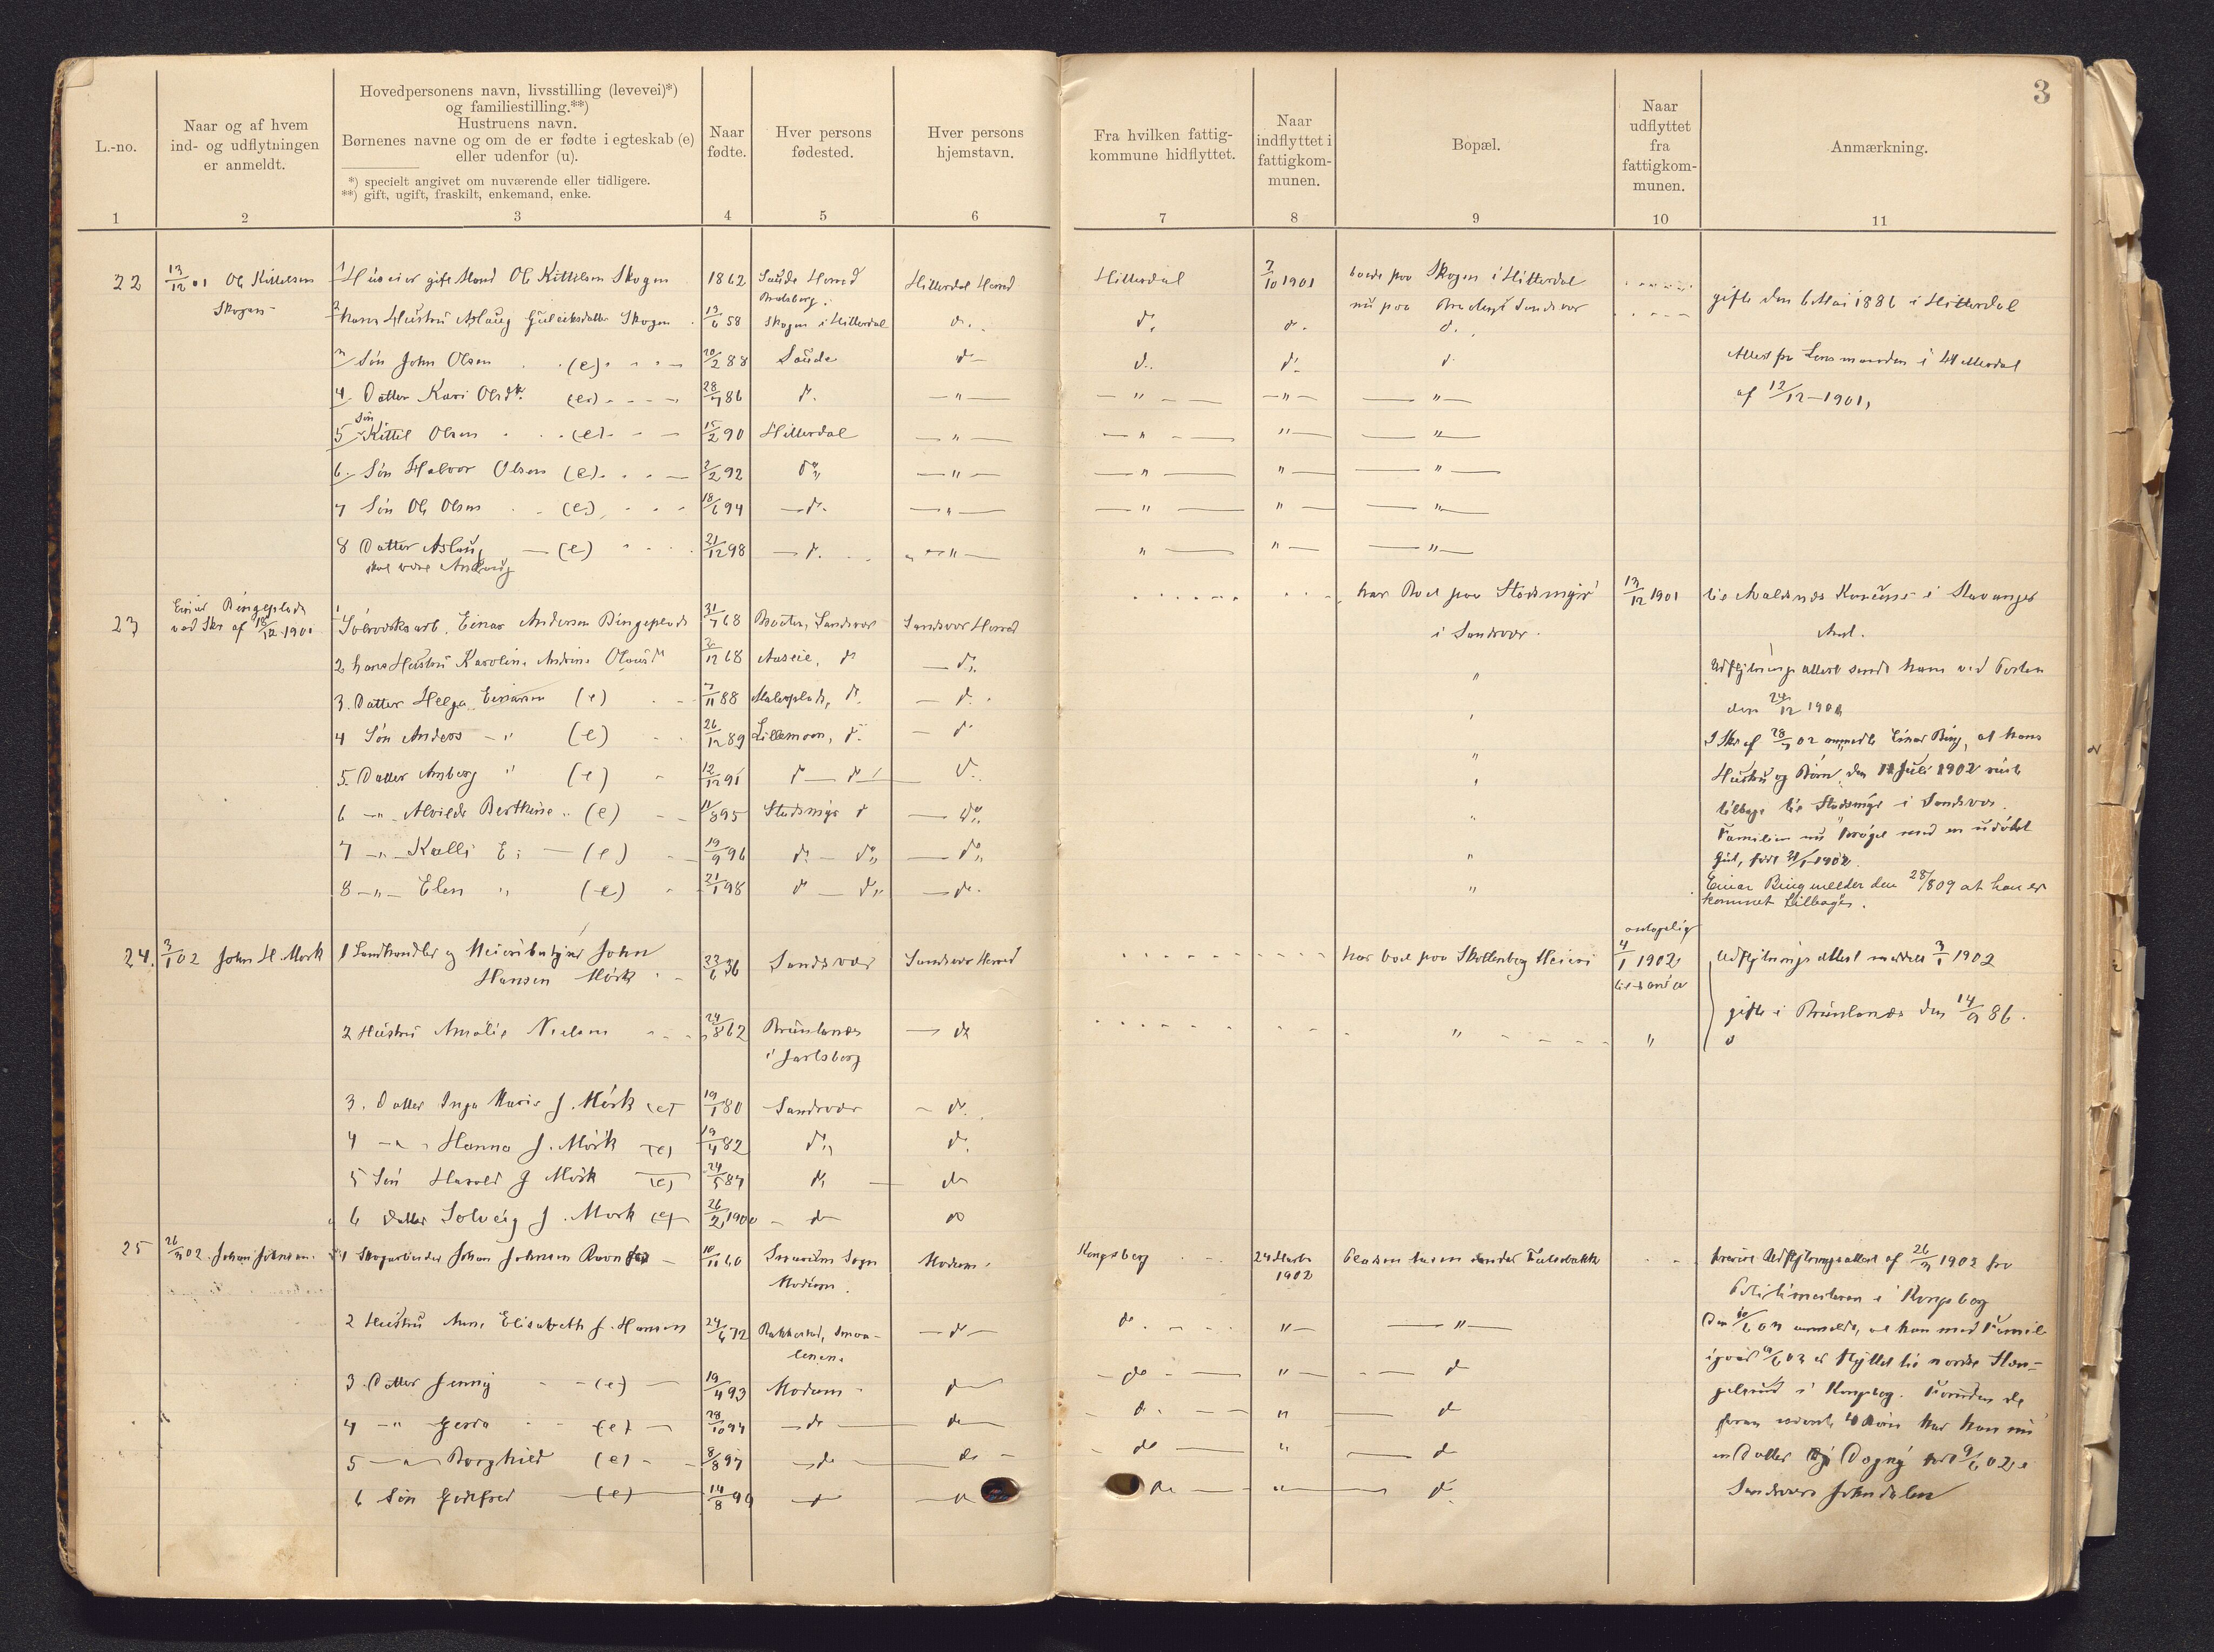 3
L.-no.
Naar og af hvem
ind- og udflytningen
er anmeldt.
Hovedpersonens navn, livsstilling (levevei)*)
og familiestilling.**)
Hustruens navn.
Børnenes navne og om de er fødte i egteskab (e)
eller udenfor (u).
*) specielt angivet om nuværende eller tidligere.
**) gift, ugift, fraskilt, enkemand, enke.
Naar
fødte.
Hver persons
fødested.
Hver persons
hjemstavn.
Fra hvilken fattig-
kommune hidflyttet.
Naar
indflyttet i
fattigkom-
munen.
Bopæl.
Naar
udflyttet
fra
fattigkom-
munen.
Anmærkning.
1 2 3 4 5 6 7 8 9 10 11
22 13/12 01 Ole Kittelsen 1 Huseier gift Mand Ole Kittilsen Skogen 1862 Saude Herred Hitterdal Herred Hitterdal 7/10 1901 boede paa Skogen i Hitterdal
Skogen Bratsberg. nu paa Sandsvær gifte den 6 Mai 1886 i Hitterdal
2 hans Hustru Aslaug Guleiksdatter Skogen 13/6 58 Skogen i Hitterdal do. do. do. do.
3 Søn John Olsen (e) 20/2 88 Saude do do. do. do Attest fra Lensmanden i Hitterdal
4 Datter Kari Olsdtr. (e) 28/7 86 do. " " " " af 12/12-1901,
5 Søn Kittil Olsen (e) 15/2 90 Hitterdal " " " "
6. Søn Halvor Olsen (e) 2/2 92 do " " " "
7 Søn Ole Olsen (e) 18/6 94 do. " " " "
8 Datter Aslaug (e) 21/12 98 do. " " " "
skal være
23 Einar Bingeplads
ved Skr af 18/12 1901 1 Einar Andersen Bingeplads 31/7 68 Sandsvær Sandsvær Herred har Boet paa Stodsmyr 13/12 1901 til Avaldsnæs i Stavanger
i Sandsvær. Amt.
2 hans Hustru Karoline Andrine /12 68 Aaseie, do do. " Udflytningsattest sendt ham ved Posten
3. Datter Helga Einarsen (e) 7/11 88 do. do. den 24/12 1901
4 Søn Anders " (e) 26/12 89 Lillemoen, do. do " I Skr af 28/7 02 anmeldte Einar Bing, at hans
5. Datter Anberg " (e) 12/12 91 do do do. Hustru og Børn den Juli 1902 reiste
6 " Alvilde Berthine " (e) 11/8 95 Stodsmyr do do. " tilbage til Stodsmyr i Sandsvær.
7 " Kalli E. (e) 19/9 96 do. do. do. " Familien nu forøget med en udøbt
Gut, født 1902.
8 " Elen " (e) 21/1 98 do do. do. " Einar Bing melder den 28/8 09 at han er
kommet tilbage.
24. 3/1 02 John H. Mørk 1 Landhandler og Meieribestyrer John
Hansen Mørk 23/6 36 Sandsvær Sandsvær Herred har boet paa Skollenberg Meieri antagelig
4/1 1902 Udflytningsattest meddelt 3/1 1902
2 Hustru Amalie Nielsen 24/8 62 Brunlanæs do " " gifte i Brunlanæs den 14/9 86.
i Jarlsberg
3. Datter Inga Marie J. Mørk (e) 19/1 80 Sandsvær do.
4 " Hanna J. Mørk (e) 19/4 82 do. do.
5 Søn Harald J Mørk (e) 24/5 87 do do
6 Datter Solveig J. Mørk (e) 26/2 1900 do do
25 26/3 02. Johan Johnsen. 1 Skogarbeider Johan Johnsen 10/11 60 Snarum Sogn Modum. Kongsberg 24 Marts
1902 Pladsen under
Modum.
forevist Udflytningsattest af 26/3 1902 fra
Politimesteren i Kongsberg
2 Hustru Anne Elisabeth J. Hansen 24/6 72 Rakkestad, Smaa-
lenene do do. " " Den 10/6 03 anmeldte, at han med Familie
igaar 9/6 03 er flyttet til nordre
3. Datter Jenny (e) 19/4 93 Modum do do " do i Kongsberg. Foruden de
4 " Gerda (e) 28/10 94 do do do. " do foran nævnte 4 Børn har han nu
5 " Borghild (e) 8/8 97 do do do " do en Datter Dagny født 9/6 02 i
6 Søn Godtfred (e) 14/8 99 do do do " do. Sandsvær Jondalen